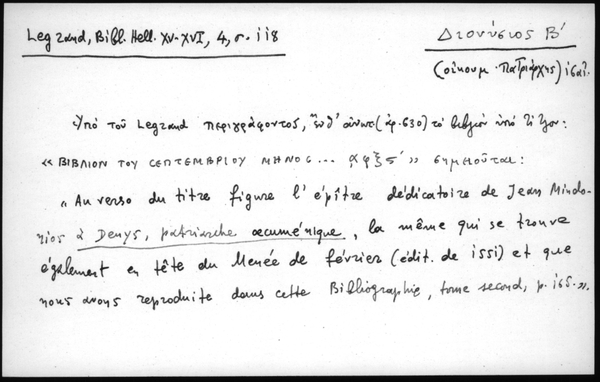 Legrand, Bibl. Hell. XV-XVI, 4, σ. 118
Διονύσιος Β΄
(οἰκουμ. Πατριάρχης)
Ὑπὸ τοῦ Legrand περιγράφοντος, ἔνθ' ἀνωτ. (ἀρ. 630) τὸ βιβλίον ὑπὸ τίτλον:
« ΒΙΒΛΙΟΝ ΤΟΥ ΣΕΠΤΕΜΒΡΙΟΥ ΜΗΝΟΣ ... ͵αφξς΄ » σημειοῦται:
" Au verso du titre figure l'épître dédicatoire de Jean Mindo-
nios à Denys, patriarche œcuménique, la même qui se trouve
également en tête du Menée de février (édit. de 1551) et que
nous avons reproduite dans cette Bibliographie, tome second, p. 165.».